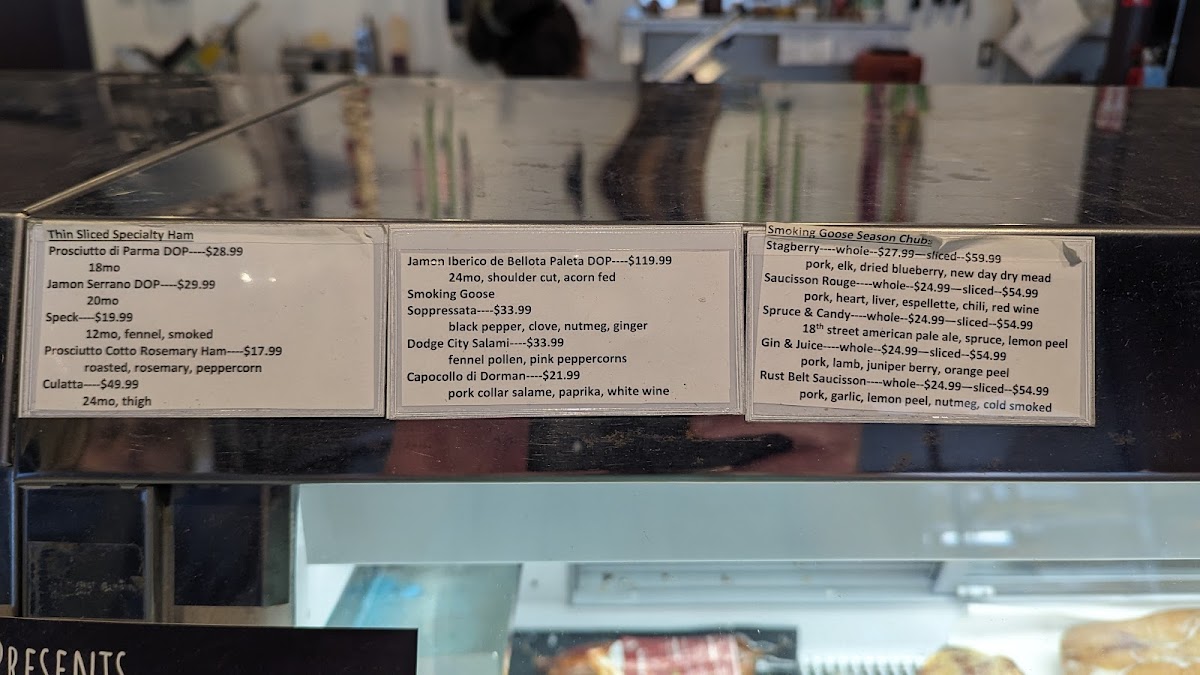 Thin Sliced Specialty Ham
Prosciutto di Parma DOP----$28.99
18mo
Jamon Serrano DOP----$29.99
20mo
Speck----$19.99
12mo, fennel, smoked
Prosciutto Cotto Rosemary Ham----$17.99
roasted, rosemary, peppercorn
Culatta----$49.99
24mo, thigh
Jamon Iberico de Bellota Paleta DOP----$119.99
24mo, shoulder cut, acorn fed
Smoking Goose
Soppressata----$33.99
black pepper, clove, nutmeg, ginger
Dodge City Salami----$33.99
fennel pollen, pink peppercorns
Capocollo di Dorman----$21.99
pork collar salame, paprika, white wine
Smoking Goose Season Chubs
Stagberry----whole--$27.99—sliced--$59.99
pork, elk, dried blueberry, new day dry mead
Saucisson Rouge----whole--$24.99—sliced--$54.99
pork, heart, liver, espellette, chili, red wine
Spruce & Candy----whole--$24.99—sliced--$54.99
18th street american pale ale, spruce, lemon peel
Gin & Juice----whole--$24.99—sliced--$54.99
pork, lamb, juniper berry, orange peel
Rust Belt Saucisson----whole--$24.99—sliced--$54.99
pork, garlic, lemon peel, nutmeg, cold smoked
PRESENTS